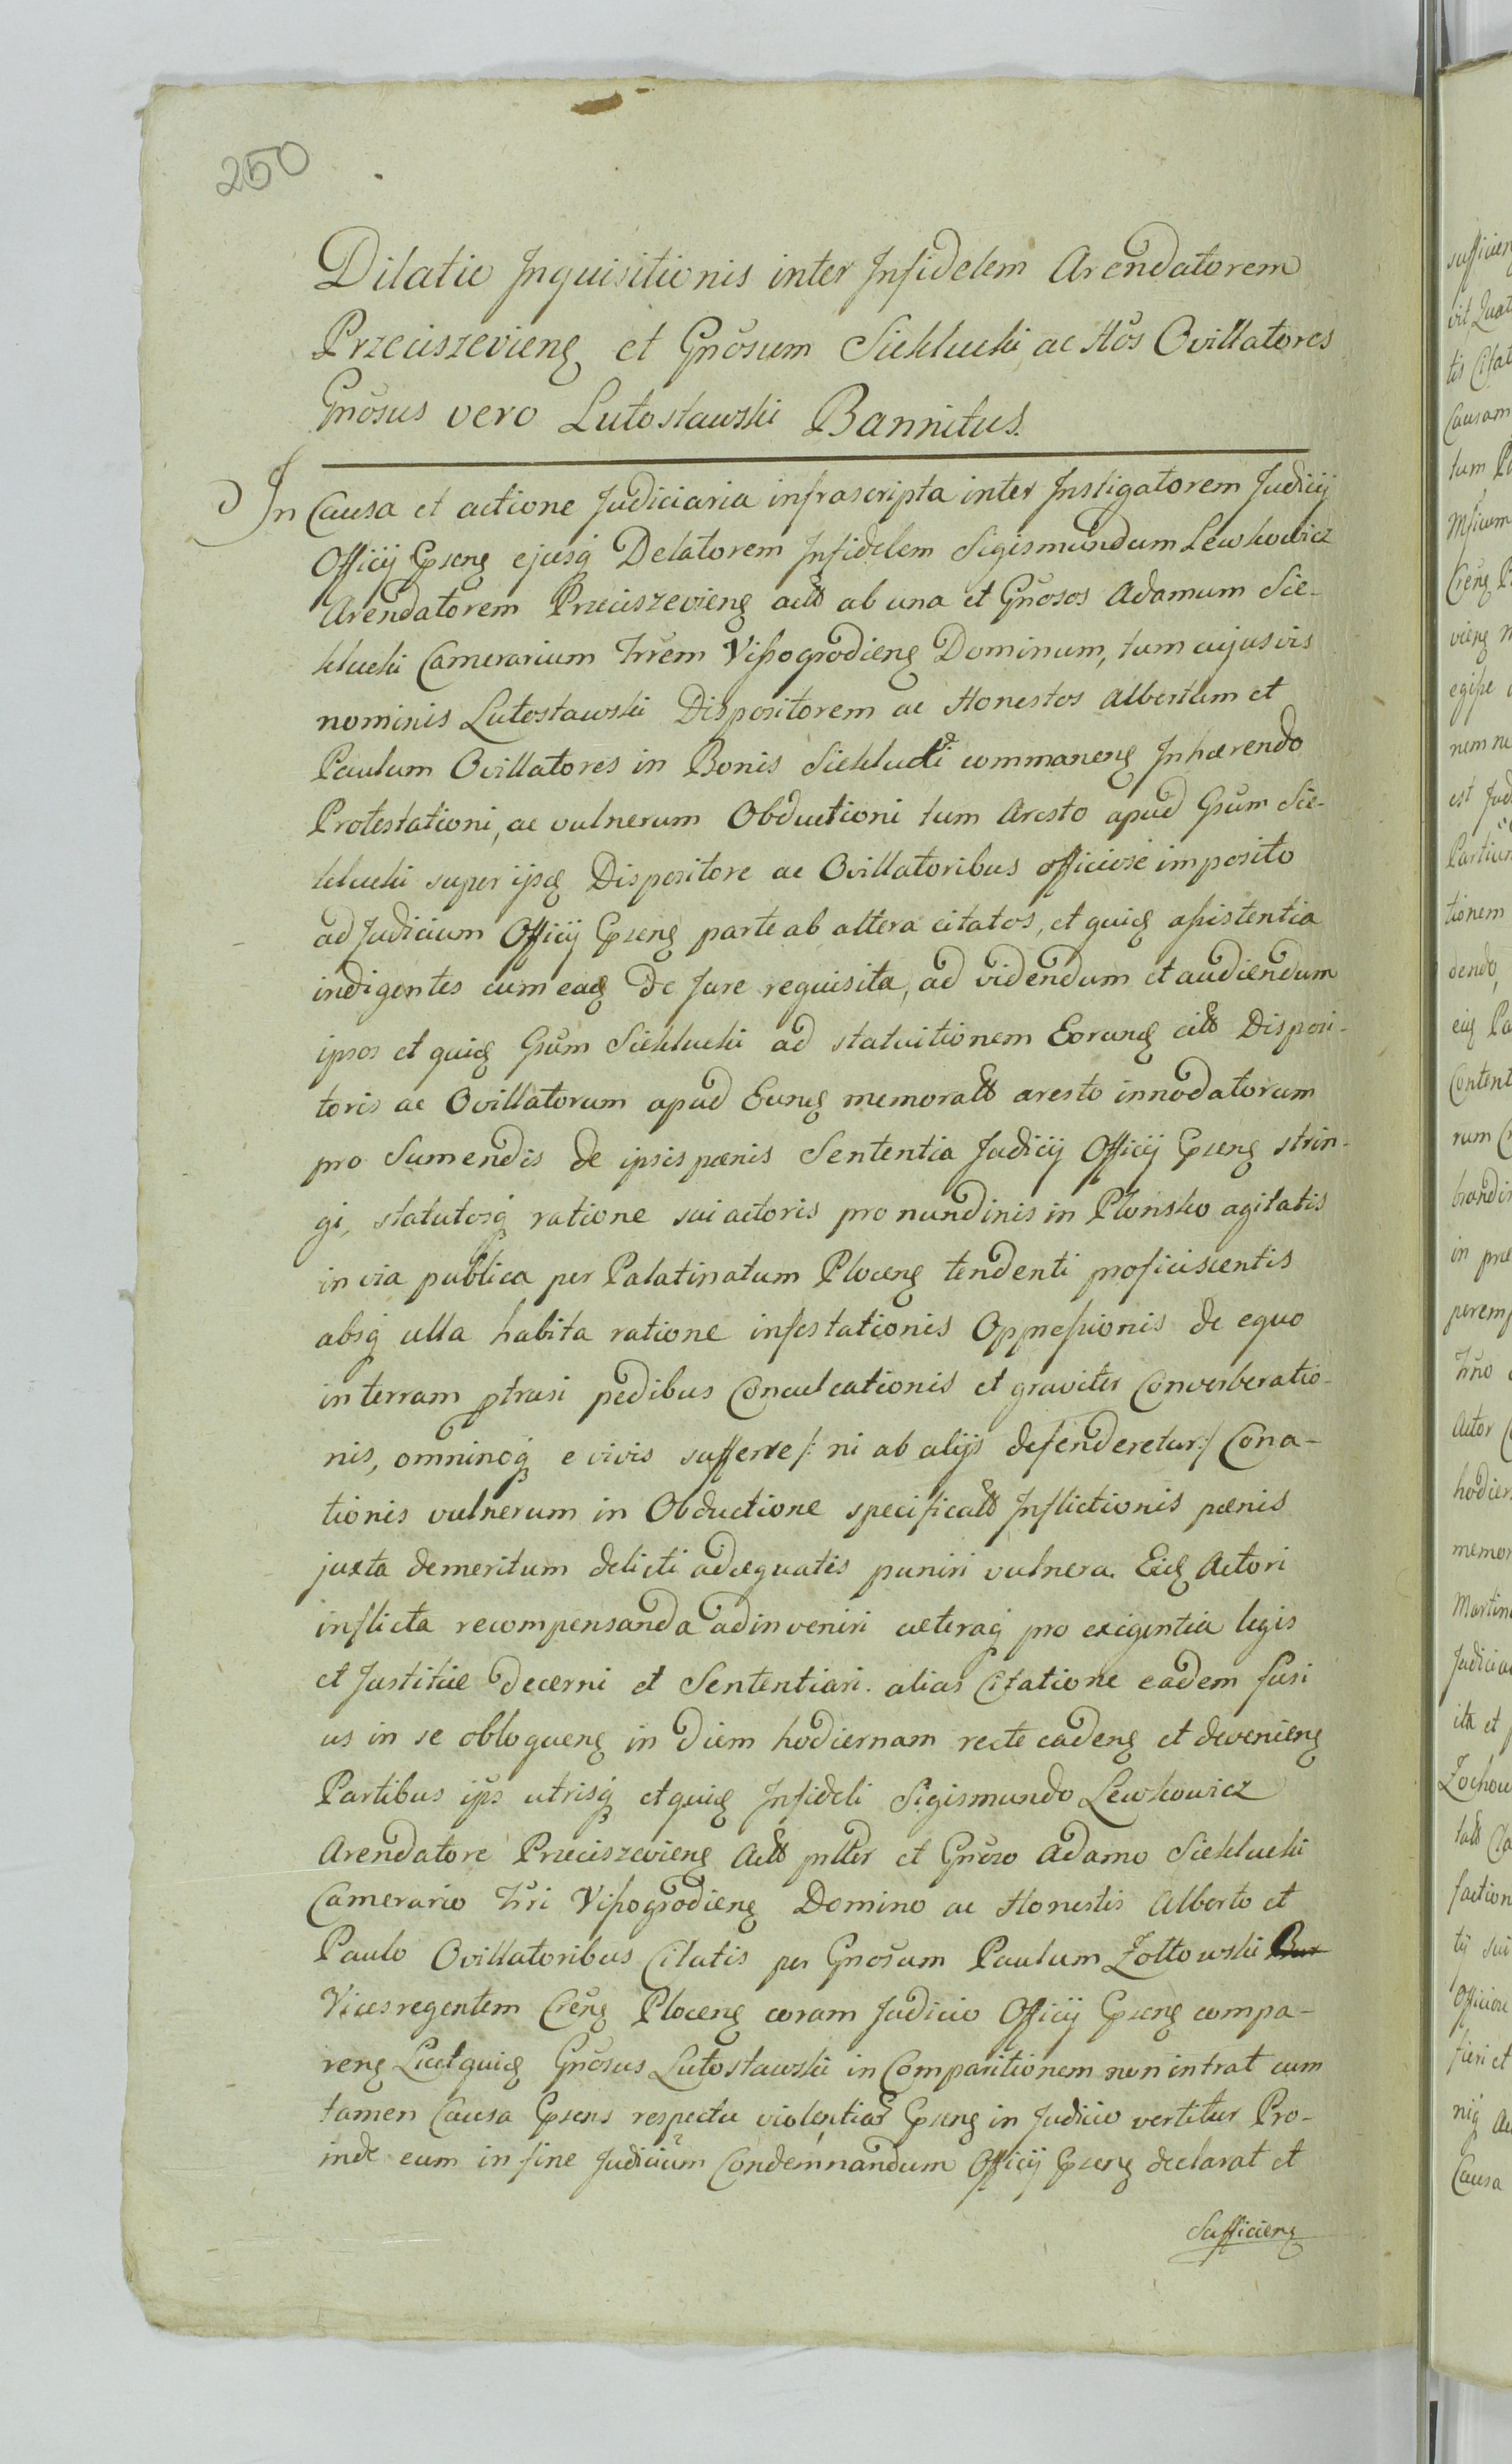 250
Dilatio Inquisitionis inter Infidelem Arendatorem
Przeciszevieng et Gnosum Sieklucki ac Hos Ovillatores
Gnosus vero Lutosławski Bannitus.
In Causa et actione Judiciaria infrascripta inter Instigatorem Judicij
Officij Gpseng ejusq Delatorem Infidelem Sigismundum Lewkowicz
Arendatorem Przeciszevieng act ab una et Gnosos Adamum Sie-
klucki Camerarium Trrem Vissogrodieng Dominum, tum cujusvis
nominis Lutosławski Dispositorem ac Honestos Albertum et
Paulum Ovillatores in Bonis Siekluck commaneng Inhærendo
Protestationi, ac vulnerum Obductioni tum Aresto apud Gsum Sie-
klucki super ijsg Dispositore ac Ovillatoribus officiose imposito
ad Judicium Officij Gpseng parte ab altera citatos, et quieg assistentia
indigentes cum eag de Jure requisita, ad videndum et audiendum
ipsos et quieg Gsum Sieklucki ad statuitionem Eorung citt Disposi-
toris ac Ovillatorum apud Eung memoratt aresto innodatorum
pro Sumendis de ipsis pænis Sententia Judicij Officij Gpseng strin-
gi, statutosq ratione sui actoris pro nundinis in Płonsko agitatis
in via publica per Palatinatum Ploceng tendenti proficiscentis
absq ulla habita ratione infestationis Oppressionis de equo
in terram ptrasi pedibus Conculcationis et graviter Converberatio-
nis, omninoq e vivis sufferre /: ni ab alijs defenderetur :/ Cona-
tionis vulnerum in Obductione specificatt Inflictionis pænis
juxta demeritum delicti adæquatis puniri vulnera Eieg Actori
inflicta recompensanda adinveniri cæteraq pro exigentia legis
et Justitiæ decerni et Sententiari. alias Citatione eadem fusi
us in se obloqueng in diem hodiernam recte cadeng et devenieng
Partibus ips utrisq et quieg Infideli Sigismundo Lewkowicz
Arendatore Przeciszevieng Act pnltter et Gnoso Adamo Sieklucki
Camerario Trri Vissogrodieng Domino ac Honestis Alberto et
Paulo Ovillatoribus Citatis per Gnosum Paulum Zołtowski Bur
Vicesregentem Creng Ploceng coram Judicio Officij Gpseng compa-
reng Licet quieg Gnosus Lutosławski in Comparitionem non intrat cum
tamen Causa Gpsens respectu violentiar Gpseng in Judicio vertitur Pro-
inde eum in fine Judicium Condemnandum Officij Gpseng declarat et
Sufficieng